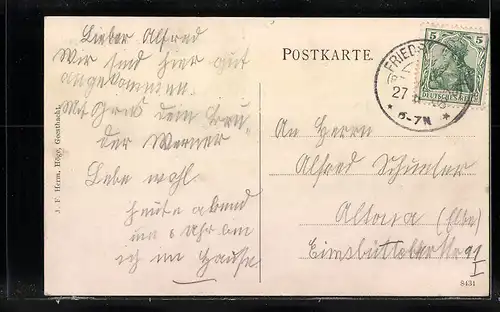 Lieber Alfred
Wir sind hier gut
angekommen.
Mit Gruß dein Bru-
der Werner
Lebe wohl.
heute abend
um 8 Uhr bin
ich im Hause
J. F. Herm. Höge, Geesthacht.
POSTKARTE.
FRIEDR
27
* 6-7N *
5 5
DEUTSCHES REICH
An Herrn
Alfred Schunter
Altona (Elbe)
Eimsbüttelerstr 91
I
8431